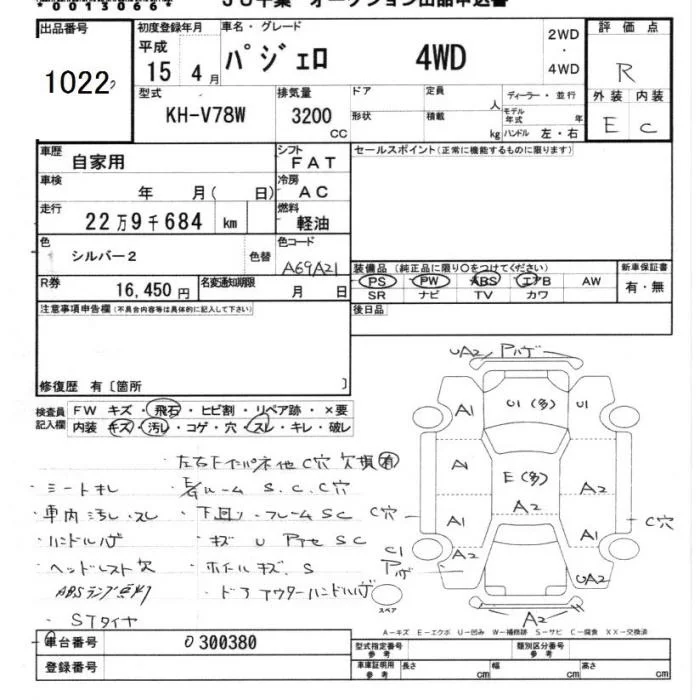 00130664
JU千葉 オークション出品申込書
出品番号 初度登録年月 車名・グレード 2WD・4WD 評価点
1022 平成15年4月 パジェロ 4WD R
型式 排気量 ドア 定員 人 ディーラー・並行 外装 内装
KH-V78W 3200 CC 形状 積載 kg モデル年式 年 ハンドル 左・右 E C
車歴 自家用 シフト FAT セールスポイント(正常に機能するものに限ります)
車検 年 月( 日) 冷房 AC
走行 22万9千684 km 燃料 軽油
色 シルバー2 色替 色コード A69A21
装備品 (純正品に限り○をつけてください) 新車保証書
PS PW ABS エアB AW 有・無
SR ナビ TV カワ
R券 16,450円 名変通知期限 月 日
後日品
注意事項申告欄(不具合内容等は具体的に記入して下さい)
修復歴 有〔箇所 〕
検査員記入欄 FW キズ・飛石・ヒビ割・リペア跡・×要
内装 キズ・汚し・コゲ・穴・スレ・キレ・破レ
左右 他 C穴 欠損 有
・シートキレ ルーム S.C.C穴
・車内汚レ.スレ ・下回り.フレームSC
・ハンドルハゲ ・キズ U SC
・ヘッドレスト欠 ・ホイールキズ.S
ABSランプ点灯 ・ドアアウターハンドルハゲ
・STタイヤ
UA2 Pハゲ
A1 U1(多) U1
A E(多) A2
A2
C穴 A1 A1 C穴
C1 Pハゲ A2 UA2
スペア
A2
A－キズ E－エクボ U－凹み W－補修跡 S－サビ C－腐食 XX－交換済
車台番号 0300380
登録番号
型式指定番号 参考 類別区分番号 参考
車庫証明用 参考 長さ cm 幅 cm 高さ cm